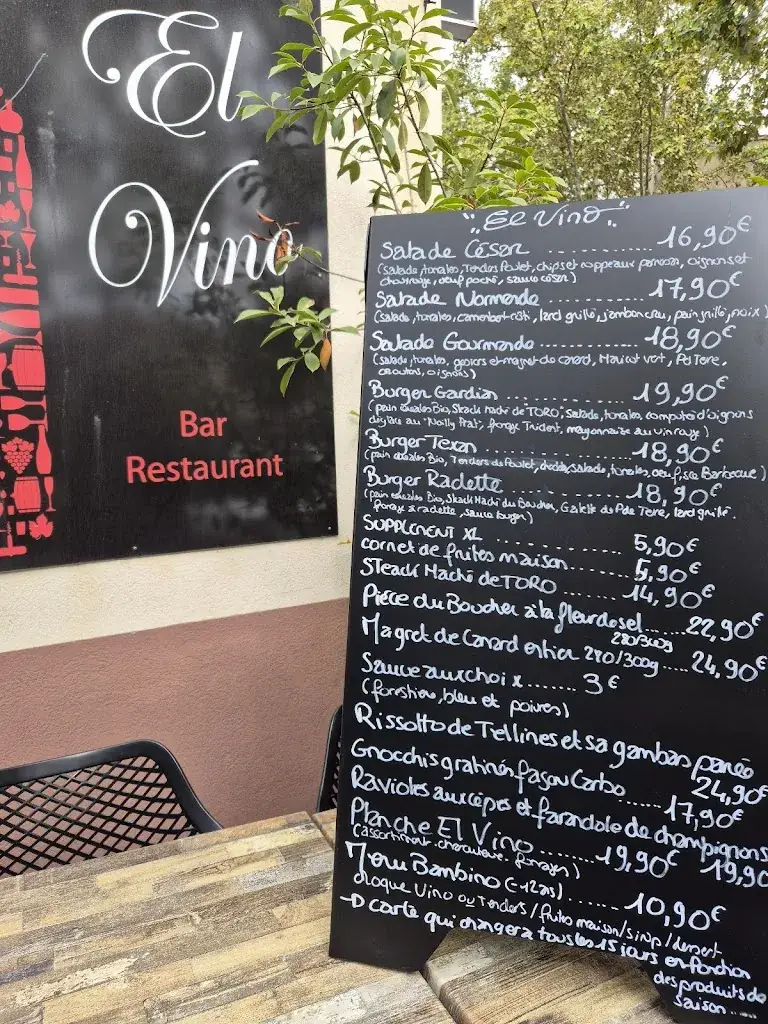 El
Vino
Bar
Restaurant
"El Vino"
Salade César ............ 16,90€
(Salade, tomates, Tenders Poulet, chips et coppeaux parmesan, oignons et
, oeuf poché, sauce césar)
Salade Normande ............ 17,90€
(salade, tomates, camembert rôti, lard grillé, jambon cru, pain grillé, noix)
Salade Gourmande ............ 18,90€
(salade, tomates, gesiers et magret de canard, Haricot vert, Pd Terre,
croutons, oignons)
Burger Gardian ............ 19,90€
(pain céréales Bio, Steack Haché de TORO, salade, tomates, compotée d'oignons
déglacée au "Noilly Prat", fromage Trident, mayonnaise au vin rouge)
Burger Texan ............ 18,90€
(pain céréales Bio, Tenders de Poulet, cheddar, salade, tomates, oeuf, sce Barbecue)
Burger Raclette ............ 18,90€
(pain céréales Bio, Steack Haché du Boucher, Galette de Pde Terre, lard grillé,
fromage à raclette, sauce burger)
SUPPLEMENT XL ............ 5,90€
cornet de frites maison ............ 5,90€
STeack Haché de TORO ............ 14,90€
Pièce du Boucher à la fleur de sel ...... 22,90€
280/300g
Magret de Canard entier 280/300g .... 24,90€
Sauce aux choix ....... 3€
(forestière, bleu et poivres)
Rissolto de Tellines et sa gambas panée
24,90€
Gnocchis gratinés façon Carbo ...... 17,90€
Ravioles aux cèpes et farandole de champignons
19,90
Planche El Vino ........ 19,90€
(assortiment charcuterie, fromages)
Menu Bambino (-12ans) ........ 10,90€
croque Vino ou Tenders/frites maison/sirop/dessert
-D carte qui changera tous les 15 jours en fonction
des produits de
saison ....